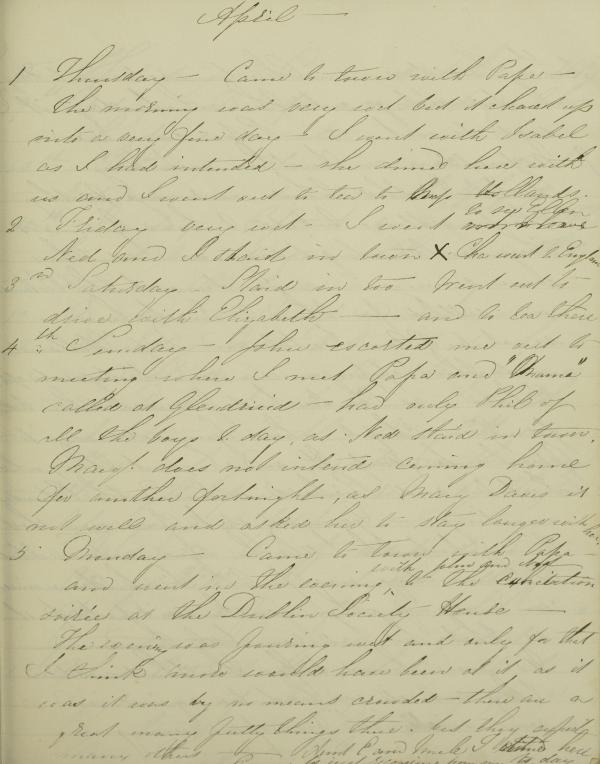 April —
1 Thursday — Came to town with Papa —
the morning was very wet but it cleared up
into a very fine day — I went with Isabel
as I had intended — she dined here with
us and I went out to tea to Hollands.
to see Ellen
2 Friday very wet — I went
Ned and I staid in town X Cha went to England
3 rd Saturday — Staid in too went out to
drive with Elizabeth — and to tea there
4 th Sunday — John escorted me out to
meeting where I met Papa and "Mama"
called at Glendruid — had only Phil of
all the boys to day, as Ned staid in town.
Margt. does not intend coming home
for another fortnight, as Mary Davis is
not well and asked her to stay longer with her.
5 Monday — Came to town with Papa —
with John and Ned
and went in the evening, to the exhibition
soirée at the Dublin Society House —
The evening was pouring wet and only for that
I think more would have been at it as it
was it was by no means crowded — there are a
great many pretty things there. but they expect
many others — Aunt E and Uncle J dined here
to day